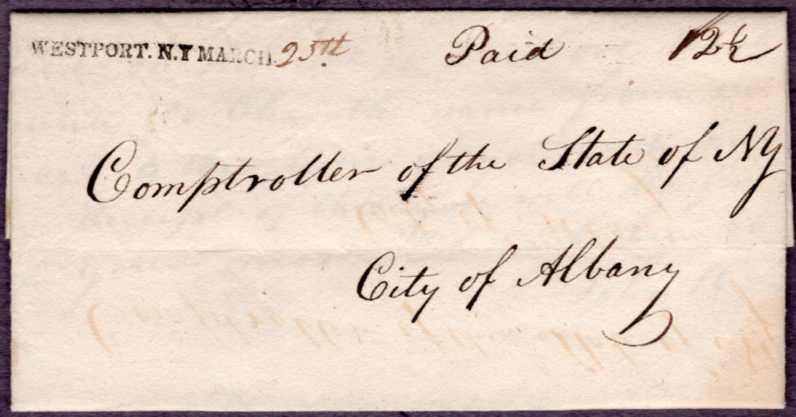 WESTPORT. N.Y MARCH. 25th Paid 12½
Comptroller of the State of NY
City of Albany